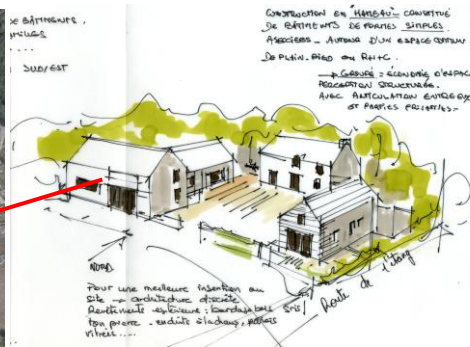 DE BÂTIMENTS,
FAMILLES
....
SUD/EST
CONSTRUCTION EN "HAMEAU" CONSTITUÉ
DE BÂTIMENTS DE FORMES SIMPLES
ASSOCIÉES - AUTOUR D'UN ESPACE COMMUN
DE PLAIN-PIED OU R+C.
→ GROUPÉ = ÉCONOMIE D'ESPACE
PERCEPTION STRUCTURÉE.
AVEC ARTICULATION ENTRE
ET PARTIES PRIVATIVES.
NORD
Pour une meilleure insertion au
site → architecture discrète
Revêtements extérieurs : bardage bois gris/
ton pierre - enduits à la chaux, parois
vitrées....
Route de l'étang